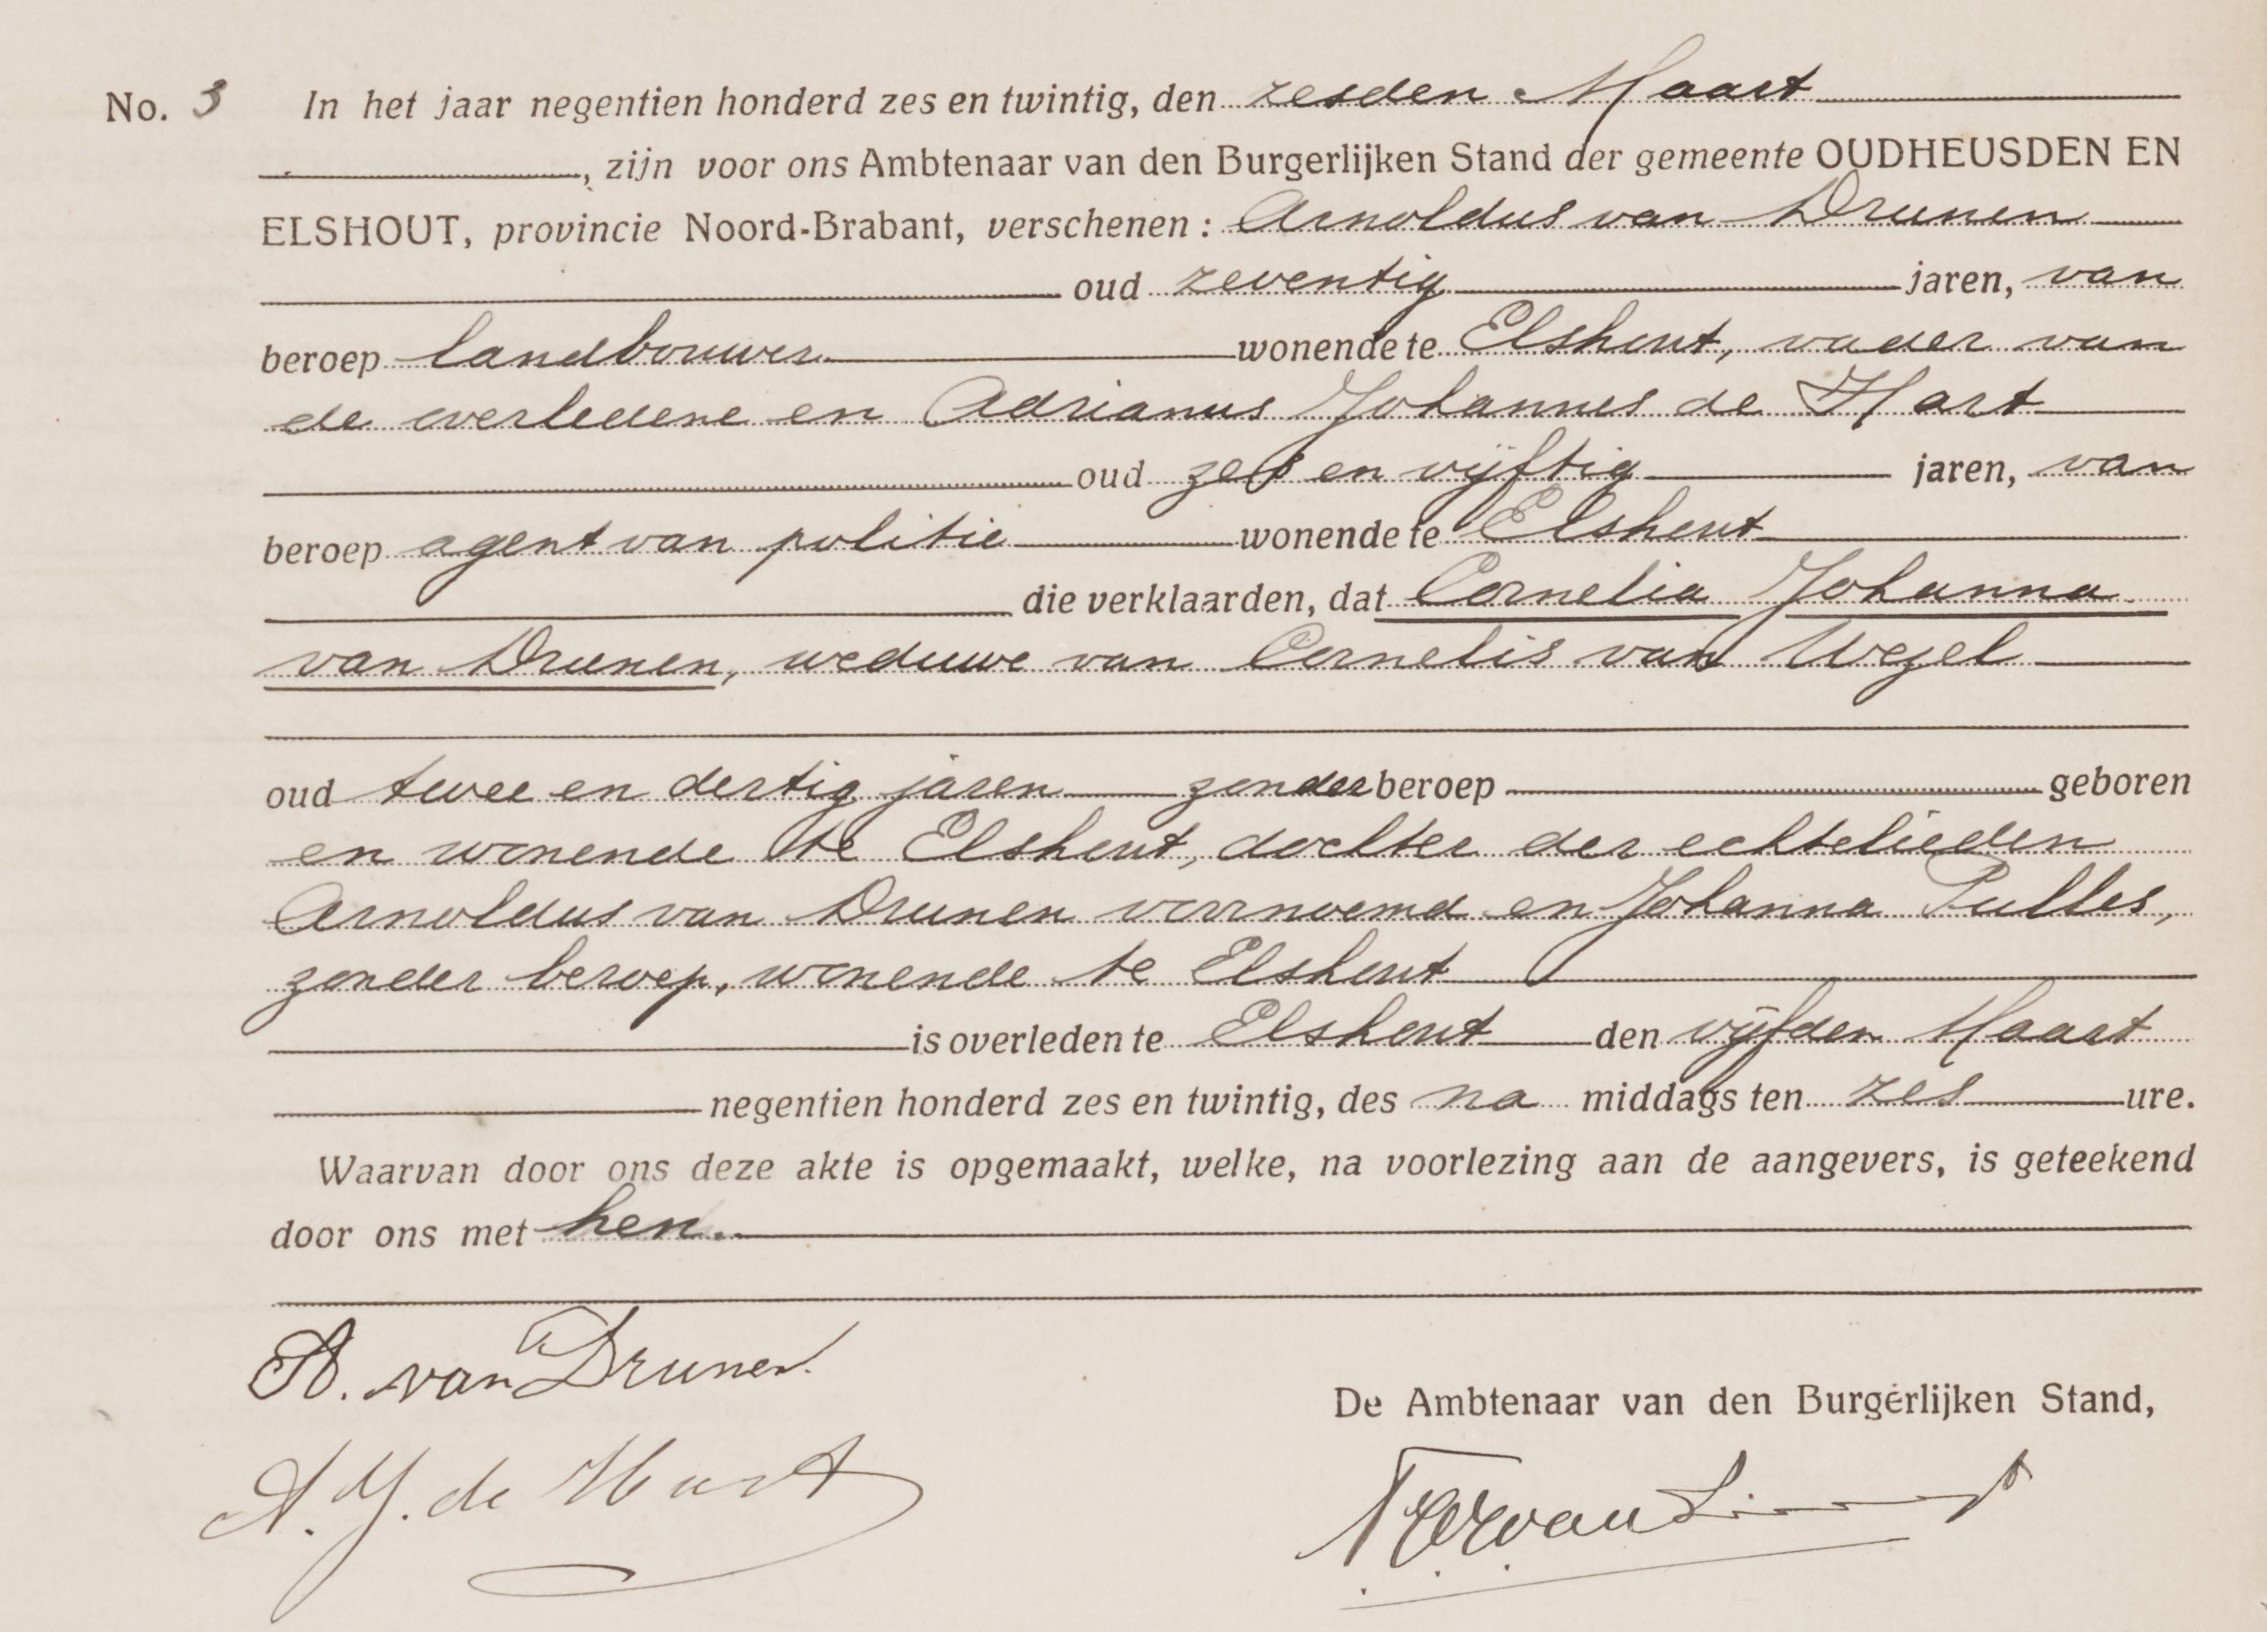 No. 3 In het jaar negentien honderd zes en twintig, den zesden Maart
, zijn voor ons Ambtenaar van den Burgerlijken Stand der gemeente OUDHEUSDEN EN
ELSHOUT, provincie Noord-Brabant, verschenen: Arnoldus van Drunen
oud zeventig jaren, van
beroep landbouwer wonende te Elshout, vader van
de overledene en Adrianus Johannes de Hart
oud zes en vijftig jaren, van
beroep agent van politie wonende te Elshout
die verklaarden, dat Cornelia Johanna
van Drunen, weduwe van Cornelis van Wezel
oud twee en dertig jaren zonder beroep geboren
en wonende te Elshout, dochter der echtelieden
Arnoldus van Drunen voornoemd en Johanna Pulles,
zonder beroep, wonende te Elshout
is overleden te Elshout den vijfden Maart
negentien honderd zes en twintig, des na middags ten zes ure.
Waarvan door ons deze akte is opgemaakt, welke, na voorlezing aan de aangevers, is geteekend
door ons met hen.
A. van Drunen.
De Ambtenaar van den Burgerlijken Stand,
A. J. de Hart